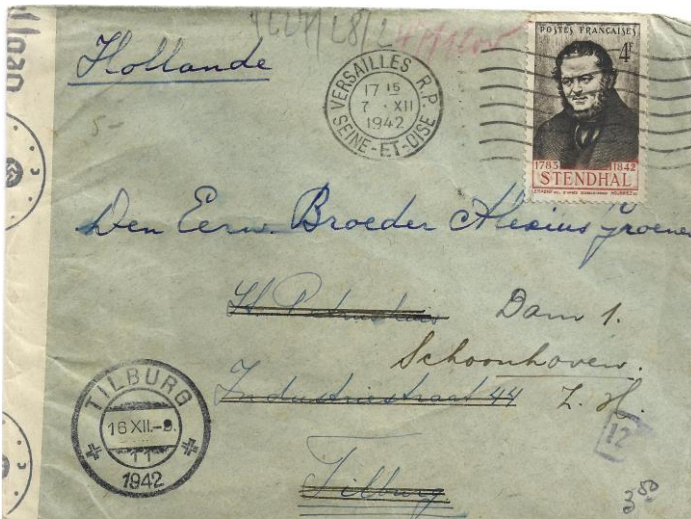 Hollande
5-
VERSAILLES R.P.
17 15
7 . XII
1942
SEINE-ET-OISE
POSTES FRANÇAISES
4F
1783 1842
STENDHAL
Den Eerw. Broeder Alexius Groenen
Dam 1.
Schoonhoven.
Industriestraat 44 Z. H.
Tilburg
TILBURG
16 XII.-9.
11
1942
12
3 50